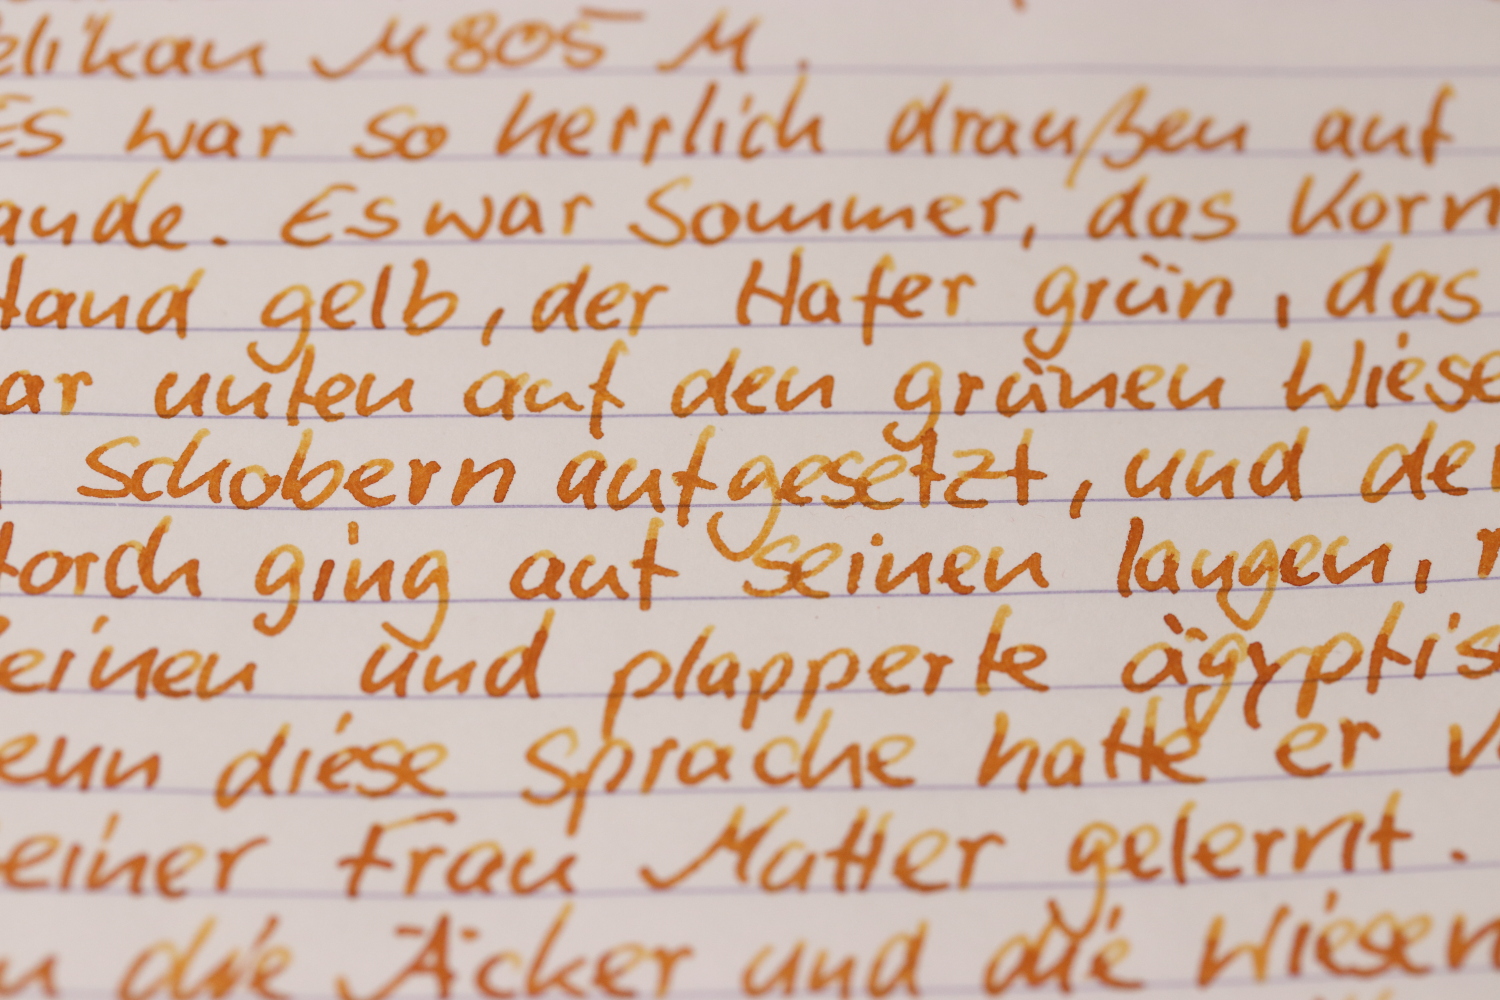 elikan M805 M.
Es war so herrlich draußen auf
ande. Es war Sommer, das Korn
tand gelb, der Hafer grün, das
ar unten auf den grünen Wiese
Schobern aufgesetzt, und der
torch ging auf seinen langen, r
einen und plapperte ägyptis
enn diese Sprache hatte er v
einer Frau Mutter gelernt.
die Äcker und die Wiesen